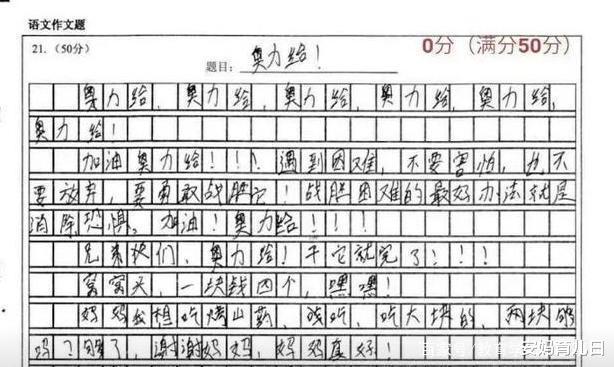 语文作文题
21.（50分） 0分（满分50分）
题目：奥力给！
奥力给，奥力给，奥力给，奥力给，奥力给，
奥力给！
加油奥力给！！！遇到困难，不要害怕，也不
要放弃，要勇敢战胜它！战胜困难的最好办法就是
消除恐惧，加油！奥力给！！！
兄弟们、奥力给！干它就完了！！！
窝窝头，一块钱四个，嘿嘿！
妈妈我想吃烤山药，吃，吃大块的，两块够
吗？够了，谢谢妈妈，妈妈真好！
安妈育儿日